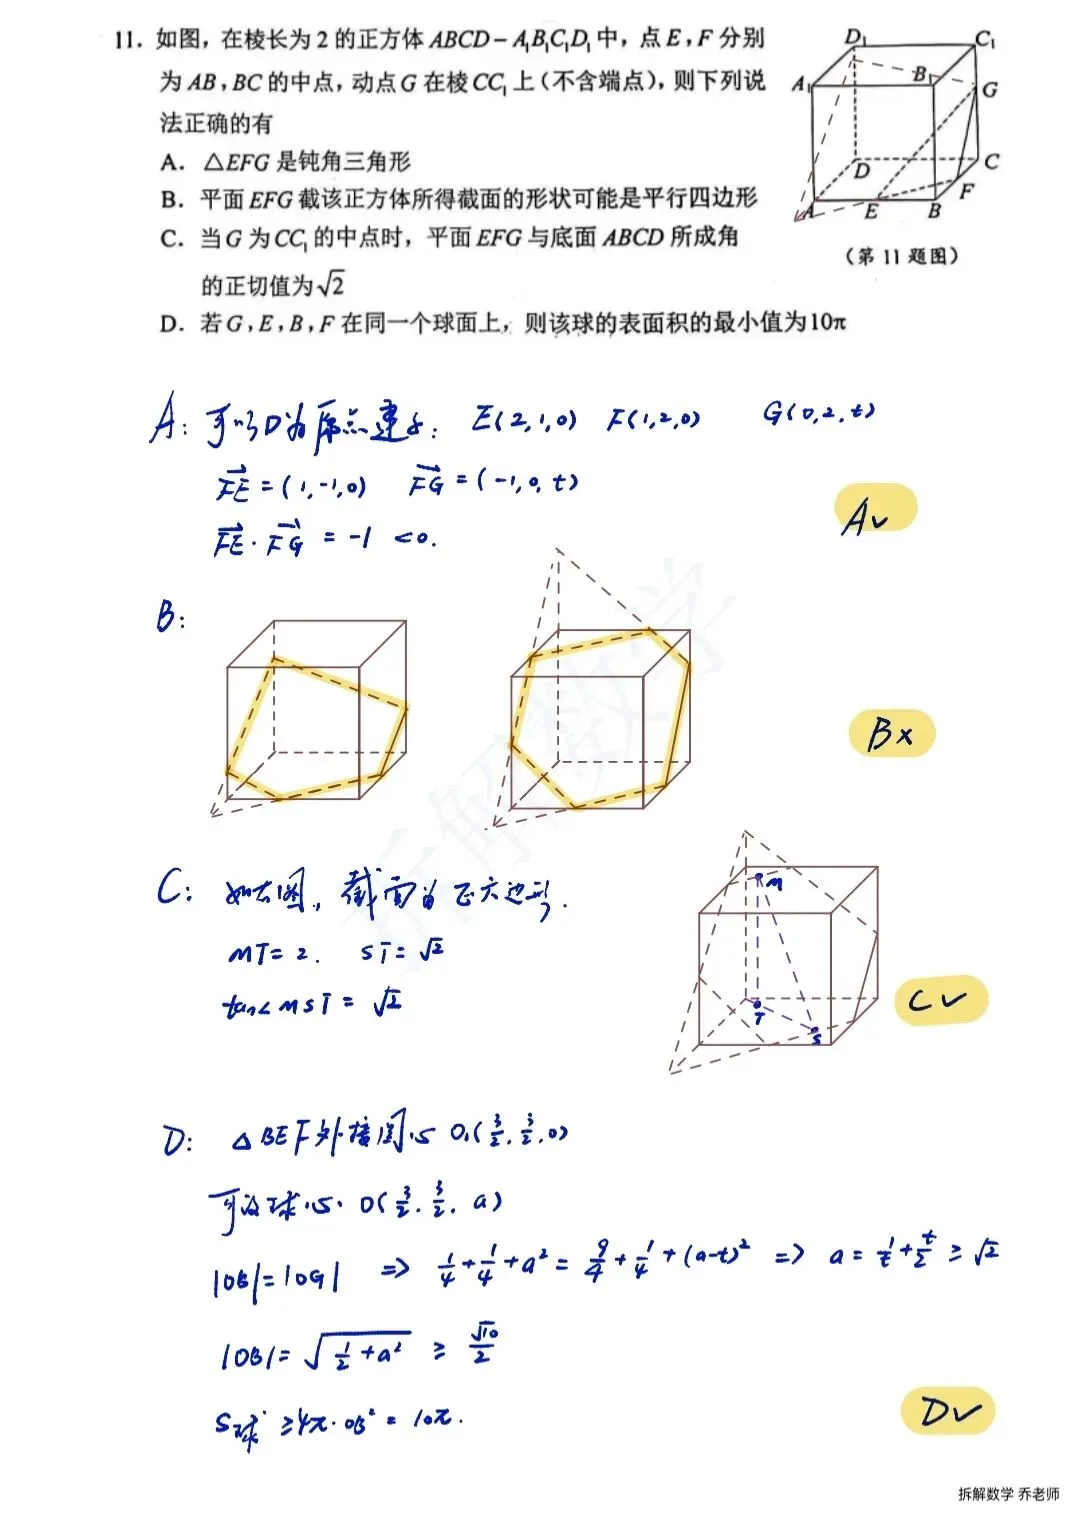 11. 如图,在棱长为2的正方体ABCD-A₁B₁C₁D₁中,点E,F分别
为AB,BC的中点,动点G在棱CC₁上(不含端点),则下列说
法正确的有
A. △EFG是钝角三角形
B. 平面EFG截该正方体所得截面的形状可能是平行四边形
C. 当G为CC₁的中点时,平面EFG与底面ABCD所成角
的正切值为√2
D. 若G,E,B,F在同一个球面上,则该球的表面积的最小值为10π
D₁ C₁
A₁ B₁ G
D C
F
A E B
(第11题图)
A: 可以D为原点建系: E(2,1,0) F(1,2,0) G(0,2,t)
FE=(1,-1,0) FG=(-1,0,t)
FE·FG=-1<0.
A✓
B:
B×
C: 如右图, 截面为正六边形.
MT=2. ST=√2
tan∠MST=√2
M
T
S
C✓
D: △BEF外接圆心O₁(3/2,3/2,0)
可设球心O(3/2,3/2,a)
|OB|=|OG| ⇒ 1/4+1/4+a²=9/4+1/4+(a-t)² ⇒ a=1/t+t/2≥√2
|OB|=√(1/2+a²)≥√10/2
S球≥4π·OB²=10π.
D✓
拆解数学
拆解数学 乔老师